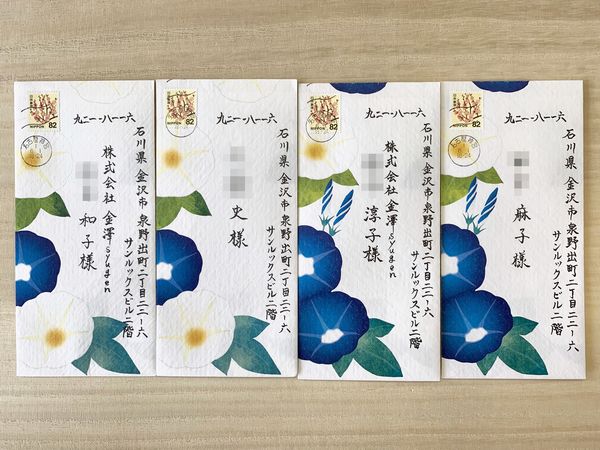 九二一-八一一六
石川県金沢市泉野出町二丁目二二-六
サンルックスビル二階
株式会社金澤syugen
和子様
NIPPON 82
九二一-八一一六
石川県金沢市泉野出町二丁目二二-六
サンルックスビル二階
史様
NIPPON 82
九二一-八一一六
石川県金沢市泉野出町二丁目二二-六
サンルックスビル二階
株式会社金澤syugen
淳子様
NIPPON 82
九二一-八一一六
石川県金沢市泉野出町二丁目二二-六
サンルックスビル二階
麻子様
NIPPON 82